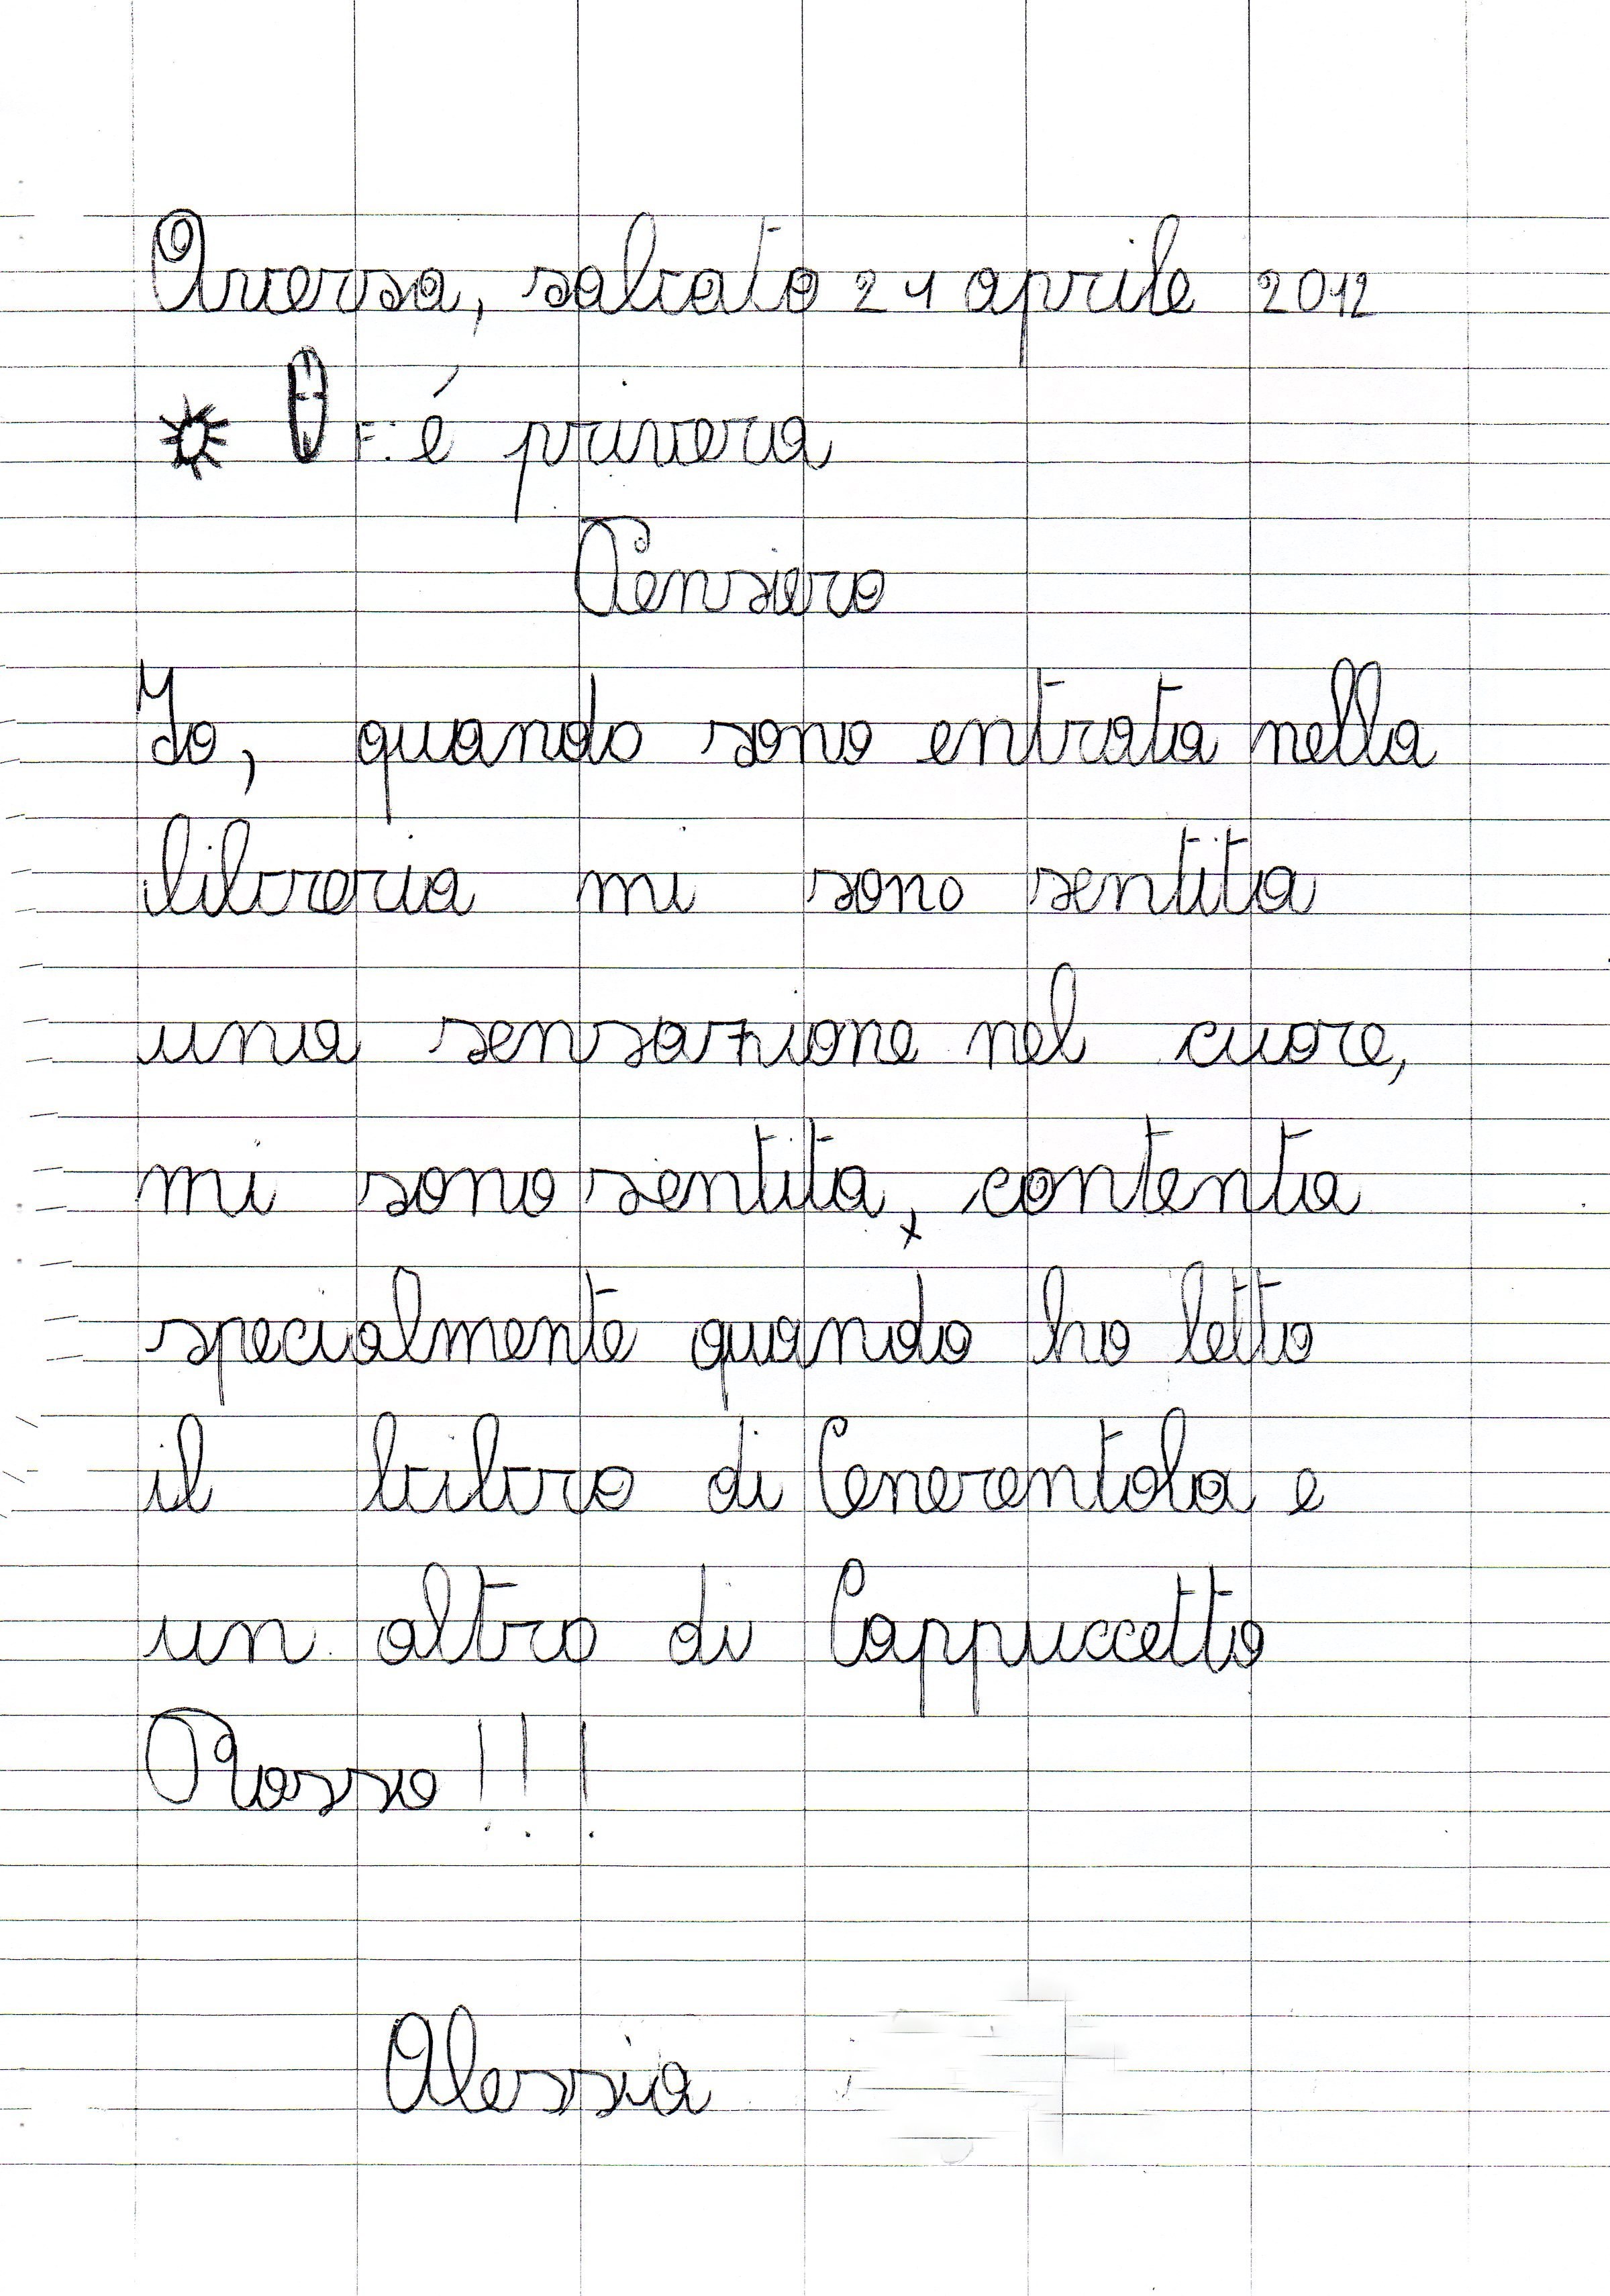 Aversa, sabato 21 aprile 2012
F: é privera
Pensiero
Io, quando sono entrata nella
libreria mi sono sentita
una sensazione nel cuore,
mi sono sentita, contenta
specialmente quando ho letto
il bibro di Cenerentola e
un altro di Cappuccetto
Rosso!!!
Alessia